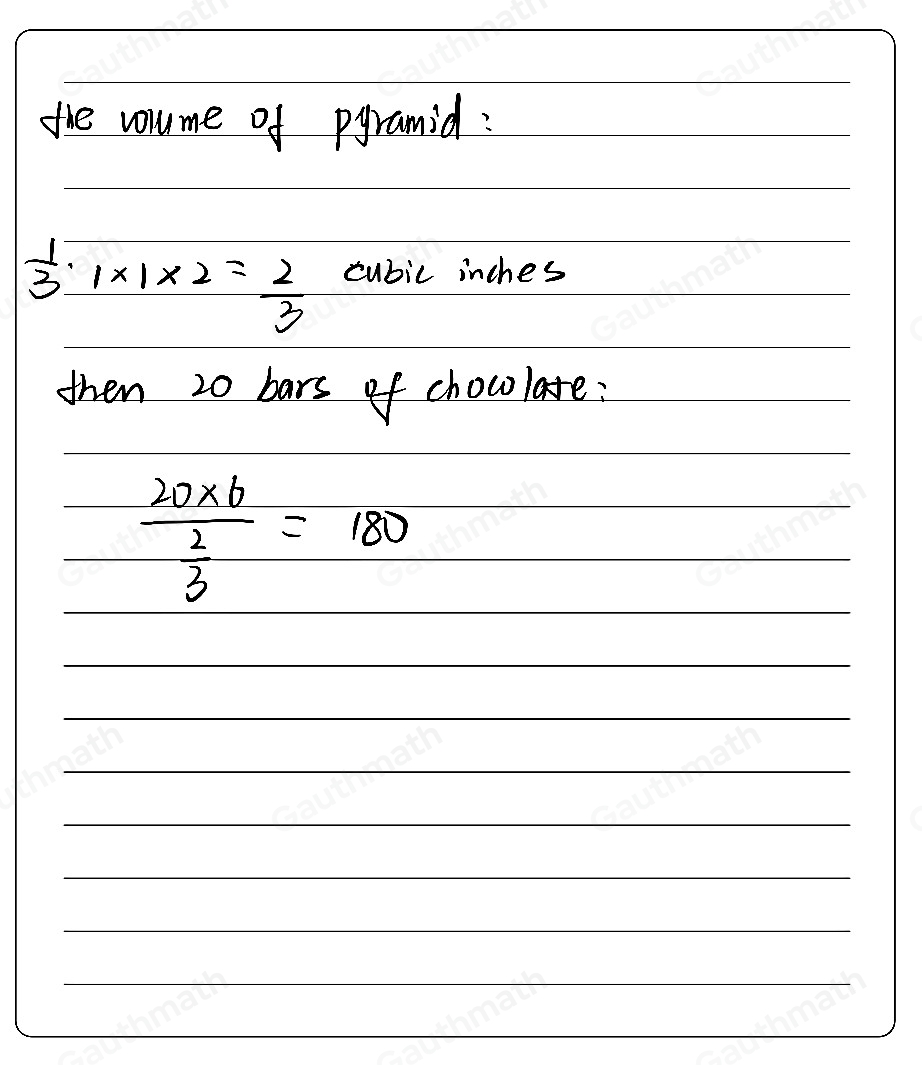 the volume of pyramid:
1/3 · 1 × 1 × 2 = 2/3 cubic inches
then 20 bars of chocolate:
(20 × 6) / (2/3) = 180
Gauthmath